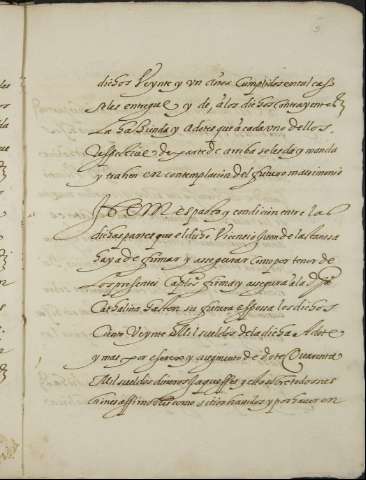 dichos Veynte y vn años Cumplidos en tal caso
se les entregue y de, a los dichos contrayentes
La hazienda y dotes que a cada vno dellos
respectiue de parte de arriba se les da y manda
y trahen en contemplacion del futuro matrimonio
ITEM es pacto, y condicion entre las
dichas partes que el dicho Vicentio Juan de la
haya de firmar y assegurar Como por tenor de
Los presentes Capitos firma y assegura a la dicha
Cathalina Gaston su futura espossa los dichos
Ciento Veynte Mil sueldos de la dicha dote
y mas por escreix y augmento de dote Quarenta
Mil sueldos dineros Jaqueses y esto sobre todos sus
bienes assi mobles como sitios hauidos y por hauer en